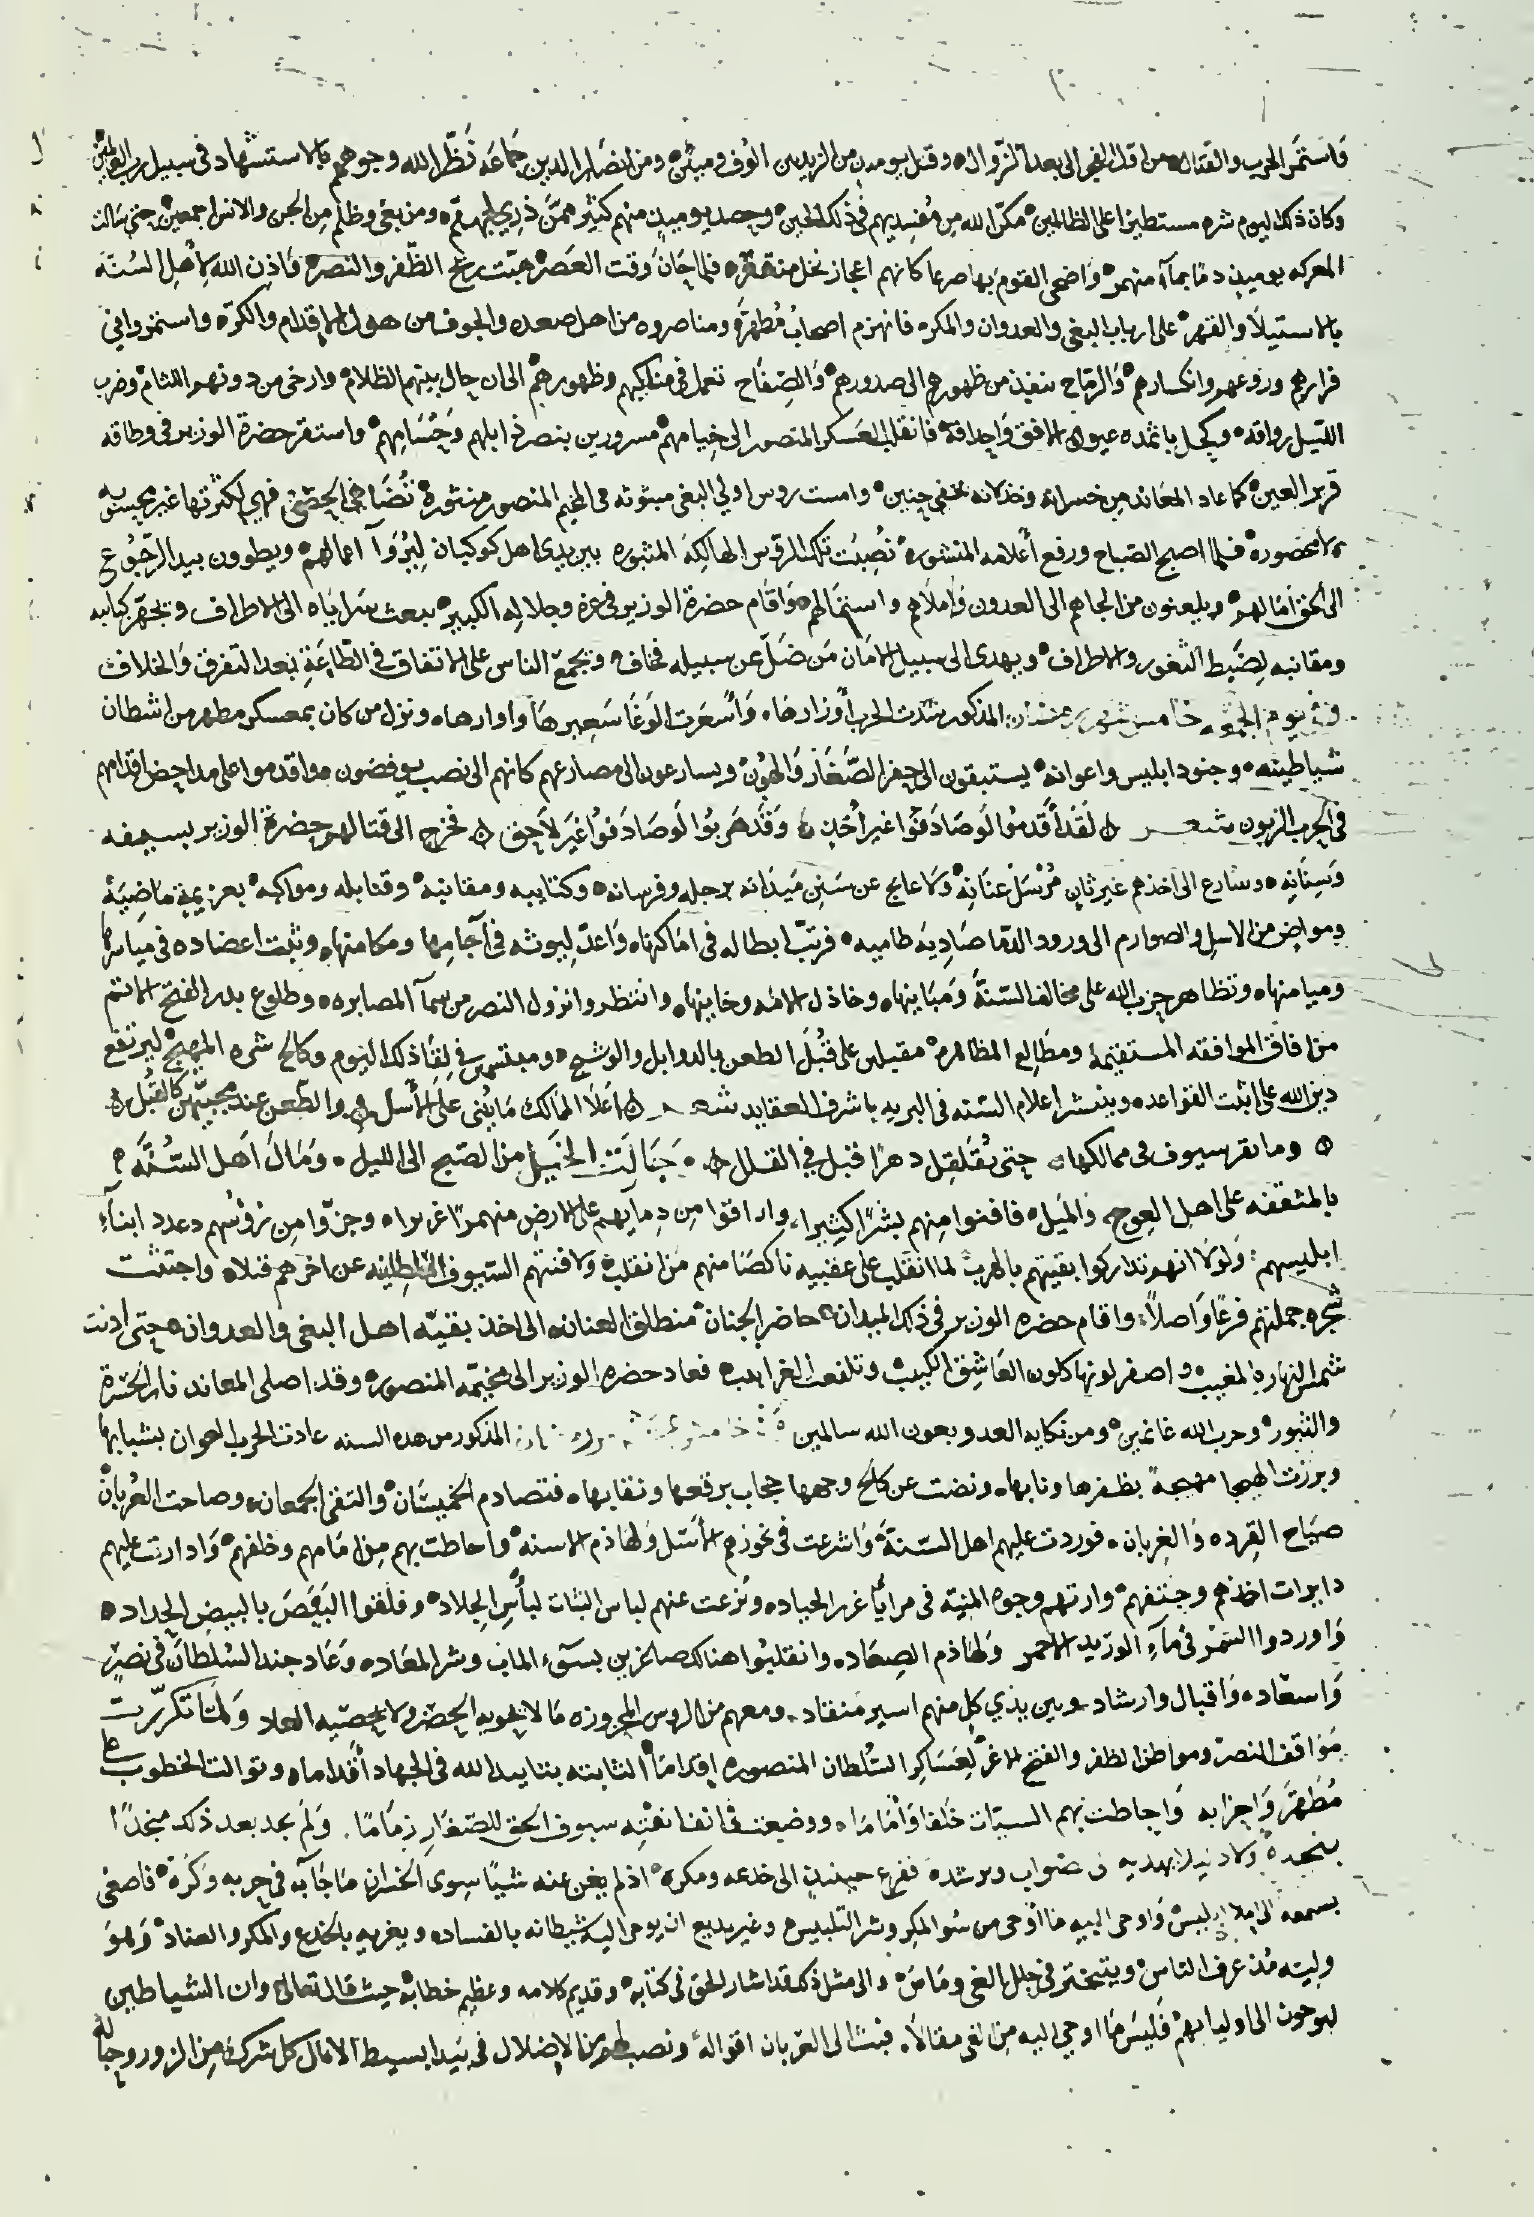 فاستمر الحرب والقتال من اول الفجر الى بعد الزوال وقتل يوميذ من الزيديين الوف ومبئن ومن انصار الدين جماعة نظر الله وجوههم بالاستشهاد في سبيل رب العالمين
وكان ذلك اليوم شره مستطيرا على الظالمين مكن الله من مفسديهم في ذلك الحين وحصد يوميذ منهم كثير ممن ذري لجهنم ومن بغى وظلم من الجن والانس اجمعين حتى سالت
المعركه يوميذ دما بماء منهمر واضحى القوم بها صرعا كانهم اعجاز نخل منقعر فلما حان وقت العصر هبت ريح الظفر والنصر فاذن الله لاهل السنة
بالاستيلاء والقهر على ارباب البغي والعدوان والمكر فانهزم اصحاب مطهر ومناصروه من اهل صعده والجوف من هول الاقدام والكر واستمروا في
فرارهم وروعهم وانكسارهم والرماح تنفذ من ظهورهم الى صدورهم والصفاح تعمل في مناكبهم وظهورهم الى ان حال بينهم الظلام وارخى من دونهم اللثام وضرب
الليل رواقه وكحل باثمده عيون الافق واحداقه فانقلب العسكر المنصور الى خيامهم مسرورين بنصر ذابلهم وحسامهم واستقر حضرة الوزير في وطاقه
قرير العين كما عاد المعاند من خسرانه وخذلانه بخفي حنين وامست روس اولي البغي مبثوثه في المخيم المنصور منثورة تضاهي الحصى فهي لكثرتها غير محسوبه
ولا محصوره فلما اصبح الصباح ورفع أعلامه المنشوره نصبت تلك الروس الهالكة المثبوره بين يدي اهل كوكبان ليروا اعمالهم ويطوون بيد الرجوع
الى الحق امالهم ويلعنون من الجاهم الى العدون واملاهم واستمالهم واقام حضرة الوزير في عزه وجلاله الكبير يبعث سراياه الى الاطراف ويجهز كتايبه
ومقانبه لضبط الثغور والاطراف ويهدي الى سبيل الامان من ضل عن سبيله فخاف ويجمع الناس على الاتفاق في الطاعة بعد التفرق والخلاف
وفي يوم الجمعه خامس شهر رمضان المذكور شدت الحرب أوزارها وأسعرت الوغا سعيرها واوارها ونزل من كان بمعسكر مطهر من اشطان
شياطينه وجنود ابليس واعوانه يستبقون الى حفر الصغار والهون ويسارعون الى مصارعهم كانهم الى نصب يوفضون واقدموا على مداحض اقدامهم
في الحرب الزبون شعر لقد أقدموا لو صادفوا غير أخذ وقد هربوا لو صادفوا غير لاحق فخرج الى قتالهم حضرة الوزير بسيفه
وسنانه وسارع الى اخذهم غير ثان مرسل عنانه ولا عايج عن سنن ميدانه برجله وفرسانه وكتايبه ومقانبه وقنابله ومواكبه بعزيمة ماضية
ومواض من الاسل والصوارم الى ورود الدما صادية ظاميه فرتب ابطاله في اماكنها واعد ليوثه في آجامها ومكامنها وثبت اعضاده في مياسرها
وميامنها وتظاهر حزب الله على مخالف السنة ومباينها وخاذل الامه وخاينها وانتظروا نزول النصر من سماء المصابره وطلوع بدر الفتح الاتم
من افاق الموافقه المستقيمة ومطالع المظاهره مقبلين على قبل الطعن بالدوابل والوشيج ومبتسمين في لقا ذلك اليوم وكالح شره المهيج ليرتفع
دين الله على اثبت القواعد وينشر اعلام السنه في البريه باشرف العقايد شعر اعلا الممالك ما يبنى على الأسل والطعن عند محبيهن كالقبل
وما تقر سيوف في ممالكها حتى تقلقل دهرا قبل في القلل جالت الخيل من الصبح الى الليل ومال اهل السنة
بالمثقفه على اهل العوج والميل فافنوا منهم بشرا كثيرا واراقوا من دمايهم على الارض منهمرا غزيرا وجزوا من رؤسهم عدد ابناء
ابليسهم ولولا انهم تداركوا بقيتهم بالهرب لما انقلب على عقبيه ناكصا منهم من انقلب ولافنتهم السيوف السلطانيه عن اخرهم قتلا واجتثت
شجره جملتهم فرعا واصلا واقام حضره الوزير في ذلك الميدان حاضر الجنان منطلق العنان الى اخذ بقيه اهل البغي والعدوان حتى أذنت
شمس النهار بالمغيب واصفر لونها كلون العاشق الكييب وتلفعت الغرابيب فعاد حضره الوزير الى مخيمه المنصوره وقد اصلى المعاند نار الحسرة
والثبور وحزب الله غانمين ومن نكاية العدو بعون الله سالمين المذكور من هذه السنه عادت الحرب العوان بشبابها
وبرزت الهيجا مهيجة بظفرها ونابها ونضت عن كالح وجهها حجاب برقعها ونقابها فتصادم الخميسان والتقى الجمعان وصاحت العربان
صياح القرده والغربان فوردت عليهم اهل السنة واشرعت في نحورهم الأسل ولهاذم الاسنه واحاطت بهم من امامهم وخلفهم وادارت عليهم
دايرات اخذهم وحتفهم وارتهم وجوه المنية في مرايا غرر الجياد ونزعت عنهم لباس الثبات لبأس الجلاد وفلقوا البيض بالبيض الحداد
واوردوا السمر في ماء الوريد الاحمر ولهاذم الصعاد وانقلبوا هنالك صاغرين بسوء الماب وشر المعاد وعاد جند السلطان في نصر
واسعاد واقبال وارشاد وبين يدي كل منهم اسير منقاد ومعهم من الروس المجزوزه ما لا يحويه الحصر ولا يحصيه العاد ولما تكررت
مواقف النصر ومواطن الظفر والفتح الاغر لعساكر السلطان المنصوره اقداما الثابته بتاييد الله في الجهاد أقداما وتوالت الخطوب على
مطهر واحزابه واحاطت بهم السيات خلفا وأماما ووضعت في انفا نفته سيوف الحق للصغار زماما ولم يجد بعد ذلك منجدا
ينجده ولا دليلا يهديه الى صواب ويرشده ففزع حينيذ الى خدعه ومكره اذ لم يغن عنه شيئا سوى الخسران ما جاء به في حربه وكره فاصغى
بسمعه الى املا ابليس واوحى اليه ما أوحى من سو المكر وشر التلبيس وغير بديع ان يوحى اليه شيطانه بالفساد ويغريه بالخدع والمكر والعناد وهو
وليه مذ عرف الناس ويتبختر في حلل الغي وماس والى مثل ذلك قد اشار الحق في كتابه وقديم كلامه وعظيم خطابه حيث قال تعالى وان الشياطين
ليوحون الى اوليايهم فليس ما اوحي اليه من الغي مقالا فبث الى العربان اقواله ونصب لهم من الاضلال في بيدا بسيط الامال كل شرك من الزور وحباله